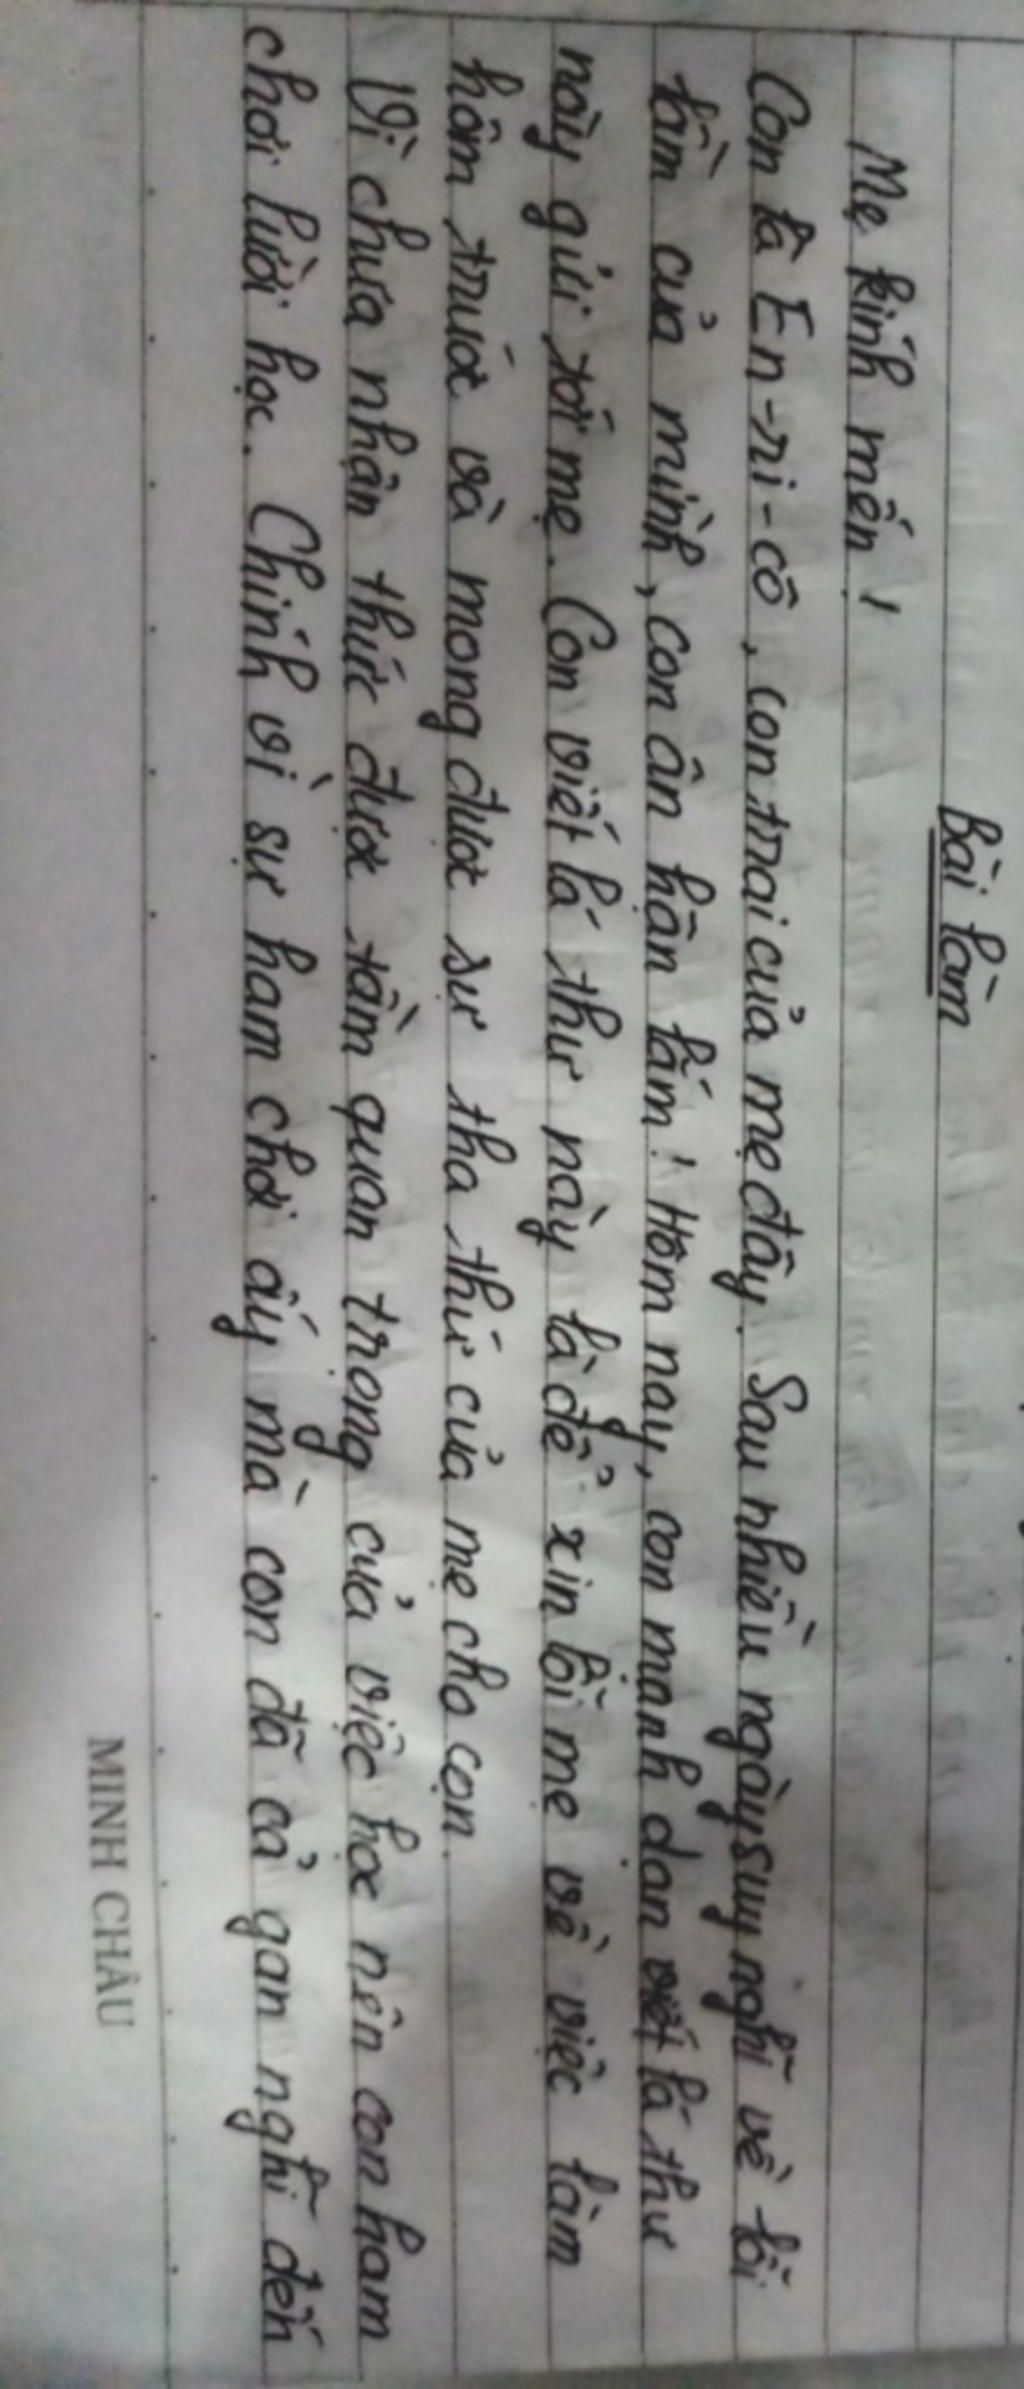 Bài làm
Mẹ kính mến!
Con là En-ri-cô, con trai của mẹ đây. Sau nhiều ngày suy nghĩ về lỗi
lầm của mình, con ân hận lắm! Hôm nay, con mạnh dạn viết lá thư
này gửi tới mẹ. Con viết lá thư này là để xin lỗi mẹ về việc làm
hôm trước và mong được sự tha thứ của mẹ cho con.
Vì chưa nhận thức được tầm quan trọng của việc học nên con ham
chơi lười học. Chính vì sự ham chơi ấy mà con đã cả gan nghĩ đến
MINH CHÂU